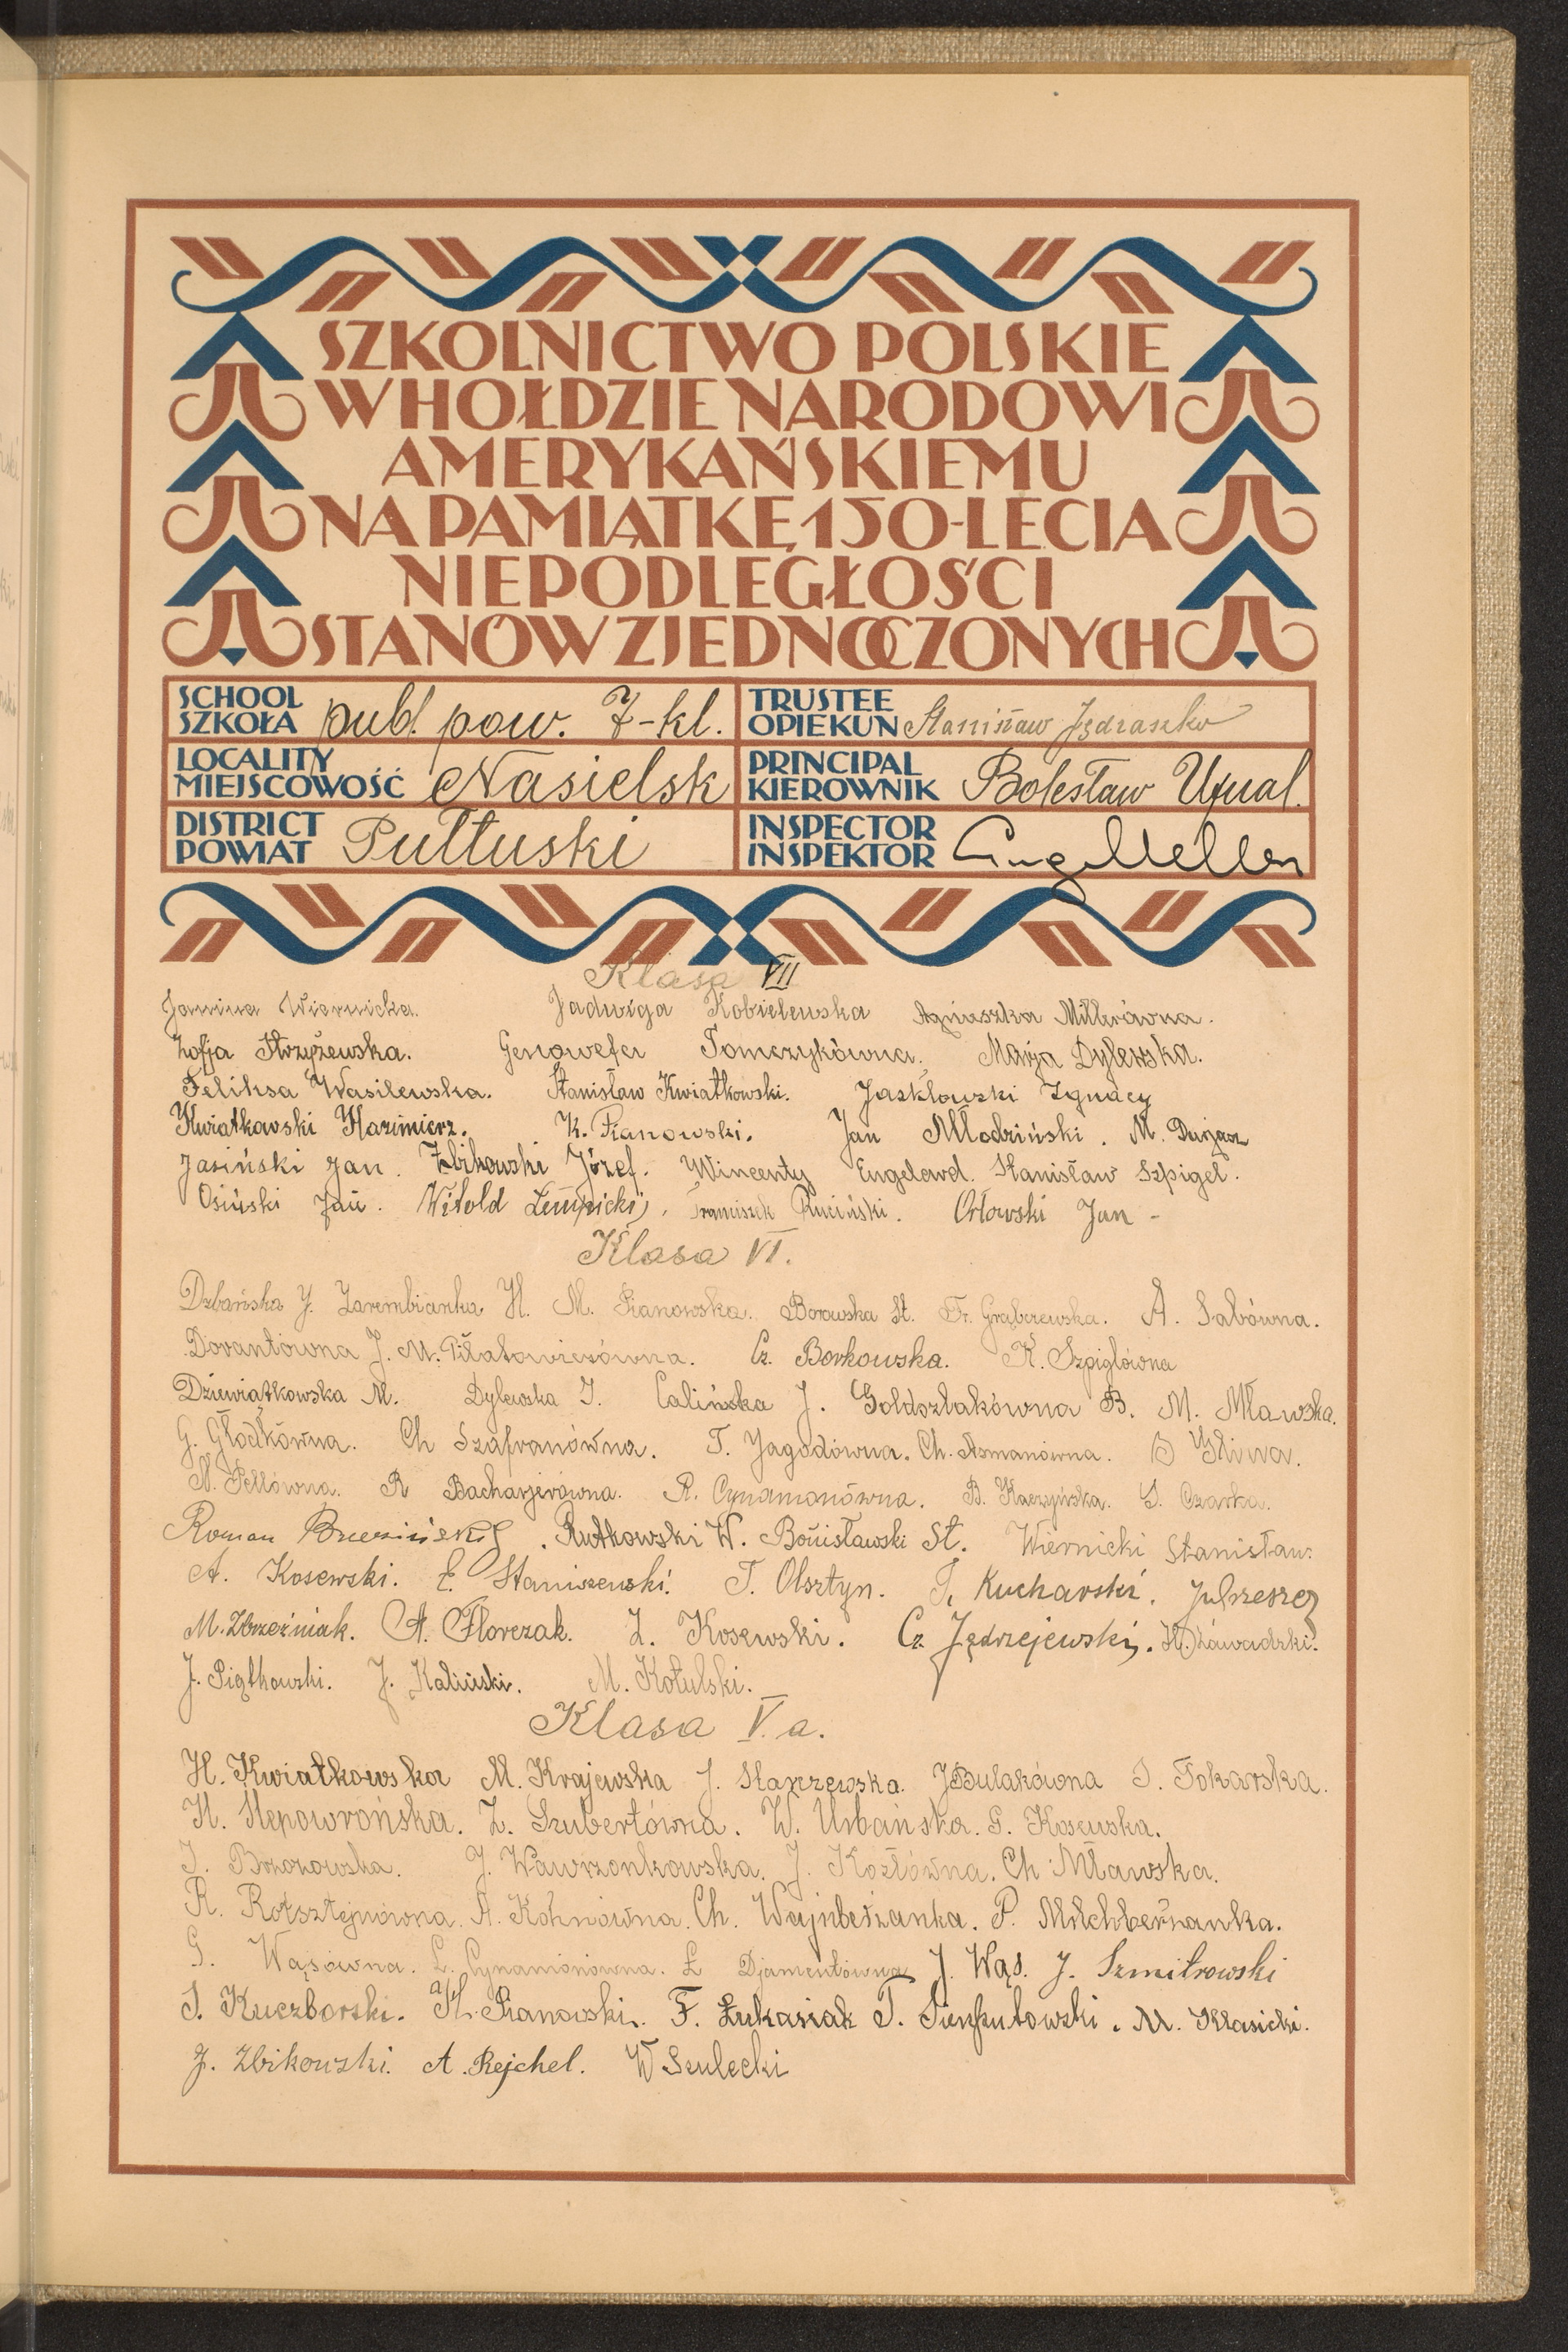 SZKOLNICTWO POLSKIE
W HOŁDZIE NARODOWI
AMERYKAŃSKIEMU
NA PAMIĄTKĘ 150-LECIA
NIEPODLEGŁOŚCI
STANÓW ZJEDNOCZONYCH
SCHOOL
SZKOŁA publ. pow. 7-kl.
TRUSTEE
OPIEKUN Stanisław Jędraszko
LOCALITY
MIEJSCOWOŚĆ Nasielsk
PRINCIPAL
KIEROWNIK Bolesław
DISTRICT
POWIAT Pułtuski
INSPECTOR
INSPEKTOR
Klasa VII
Janina Wiernicka. Jadwiga Kobielewska Agnieszka Millerówna.
Zofja Strzyżewska. Genowefa Tomczykówna. Marja Dylewska.
Feliksa Wasilewska. Stanisław Kwiatkowski. Jaskłowski Ignacy
Kwiatkowski Kazimierz. K. Pianowski. Jan Młodziński. M.
Jasiński Jan. Zbikowski Józef. Wincenty Engelard. Stanisław Szpigel.
Osiński Jan. Witold Lempicki, Franciszek Ruciński. Orłowski Jan -
Klasa VI.
Dzbańska J. Zarembianka H. M. Pianowska. Borowska St. Fr. Grąbczewska. A. Sabówna.
Dorantówna J. M. Piłatowiczówna. Cz. Borkowska. R. Szpiglówna
Dziewiątkowska M. Dylewska J. Calińska J. Goldszlakówna B. M. Mławska.
G. Głodkówna. Ch Szafranówna. T. Jagodówna. Ch. Asmanówna. Gliwa.
N. Pellówna. R Bacharjerówna. R. Cynamonówna. B. Kaczyńska. S. Czarka.
Roman Brzeziński. Rutkowski W. Bonisławski St. Wiernicki Stanisław.
A. Kosewski. E. Staniszewski. T. Olsztyn. T. Kucharski.
M. Zbrzeźniak. A. Florczak. Z. Kosewski. Cz. Jędrzejewski. H. Zawadzki.
J. Piątkowski. J. Kaliński. M. Kotulski.
Klasa V. a.
H. Kwiatkowska M. Krajewska J. Starzewska. J Bulakówna S. Tokarska.
H. Slepowrońska. Z. Szubertówna. W. Urbańska. G. Kosewska.
J. Brzozowska. J. Wawrzonkowska. J. Kozłówna. Ch Mławska.
R. Rotsztejnówna. A. Kohnówna. Ch. Wajnbeżanka. P. Milchberżanka.
G. Wąsówna. L. Cynamonówna. Ł Djamentówna J. Wąs. J. Szmitrowski
S. Kuczborski. H. Pianowski. F. Łukasiak T. M. Klasicki.
J. Zbikowski. A. Rejchel. W Szulecki